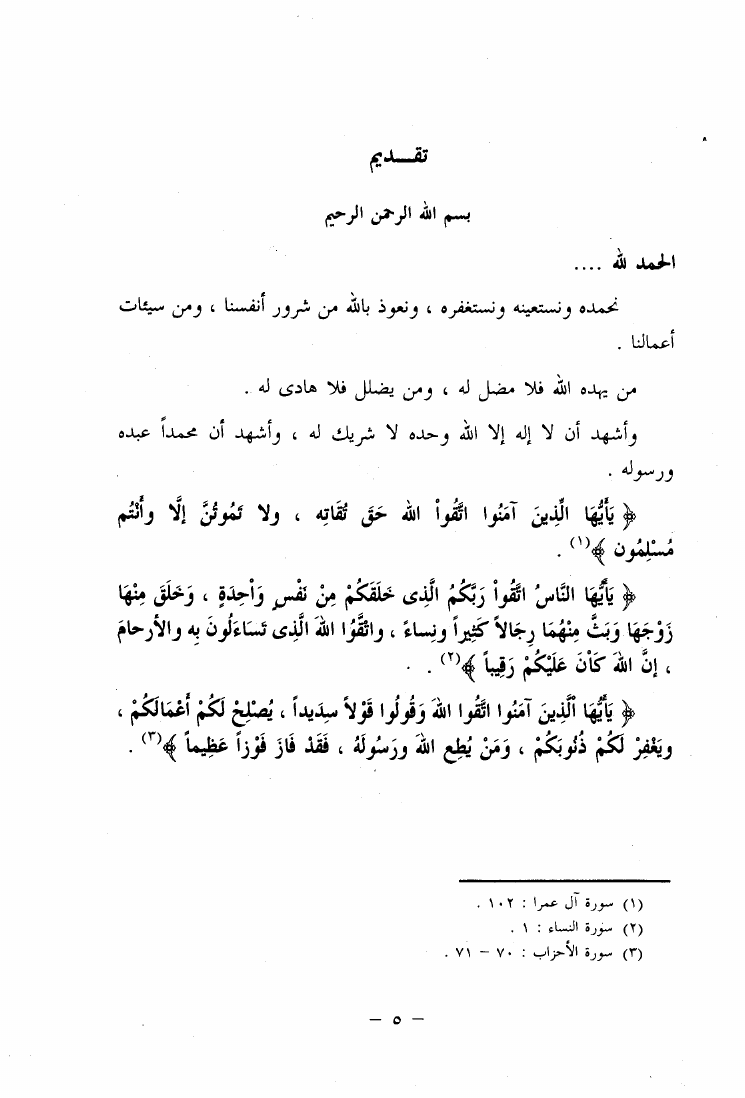 تقـــديم
بسم الله الرحمن الرحيم
الحمد لله ....
نحمده ونستعينه ونستغفره ، ونعوذ بالله من شرور أنفسنا ، ومن سيئات
أعمالنا .
من يهده الله فلا مضل له ، ومن يضلل فلا هادى له .
وأشهد أن لا إله إلا الله وحده لا شريك له ، وأشهد أن محمداً عبده
ورسوله .
﴿ يَأَيُّهَا الَّذِينَ آمَنُوا اتَّقُواْ الله حَقَ تُقَاتِه ، ولا تَمُوتُنَّ إلَّا وأَنْتُم
مُسْلِمُون ﴾(١) .
﴿ يَأَيُّهَا النَّاسُ اتَّقُواْ رَبَّكُمُ الَّذِى خَلَقَكُمْ مِنْ نَفْسٍ وَاْحِدَةٍ ، وَخَلَقَ مِنْهَا
زَوْجَهَا وَبَثَّ مِنْهُمَا رِجَالاً كَثِيراً ونِساءً ، واتَّقُوْا اللهَ الَّذِى تَسَاءَلُونَ بِه والأرحامَ
، إنَّ اللهَ كَاْنَ عَلَيْكُمْ رَقِيباً ﴾(٢) .
﴿ يَأَيُّهَا اْلَّذِينَ آمَنُوا اتَّقُوا اللهَ وَقُولُوا قَوْلاً سِدِيداً ، يُصْلِحْ لَكُمْ أَعْمَالَكُمْ ،
ويَغْفِرْ لَكُمْ ذُنُوبَكُمْ ، وَمَنْ يُطِعِ اللهَ ورَسُولَهُ ، فَقَدْ فَازَ فَوْزاً عَظِيماً ﴾(٣) .
(١) سورة آل عمرا : ١٠٢ .
(٢) سورة النساء : ١ .
(٣) سورة الأحزاب : ٧٠ – ٧١ .
– ٥ –